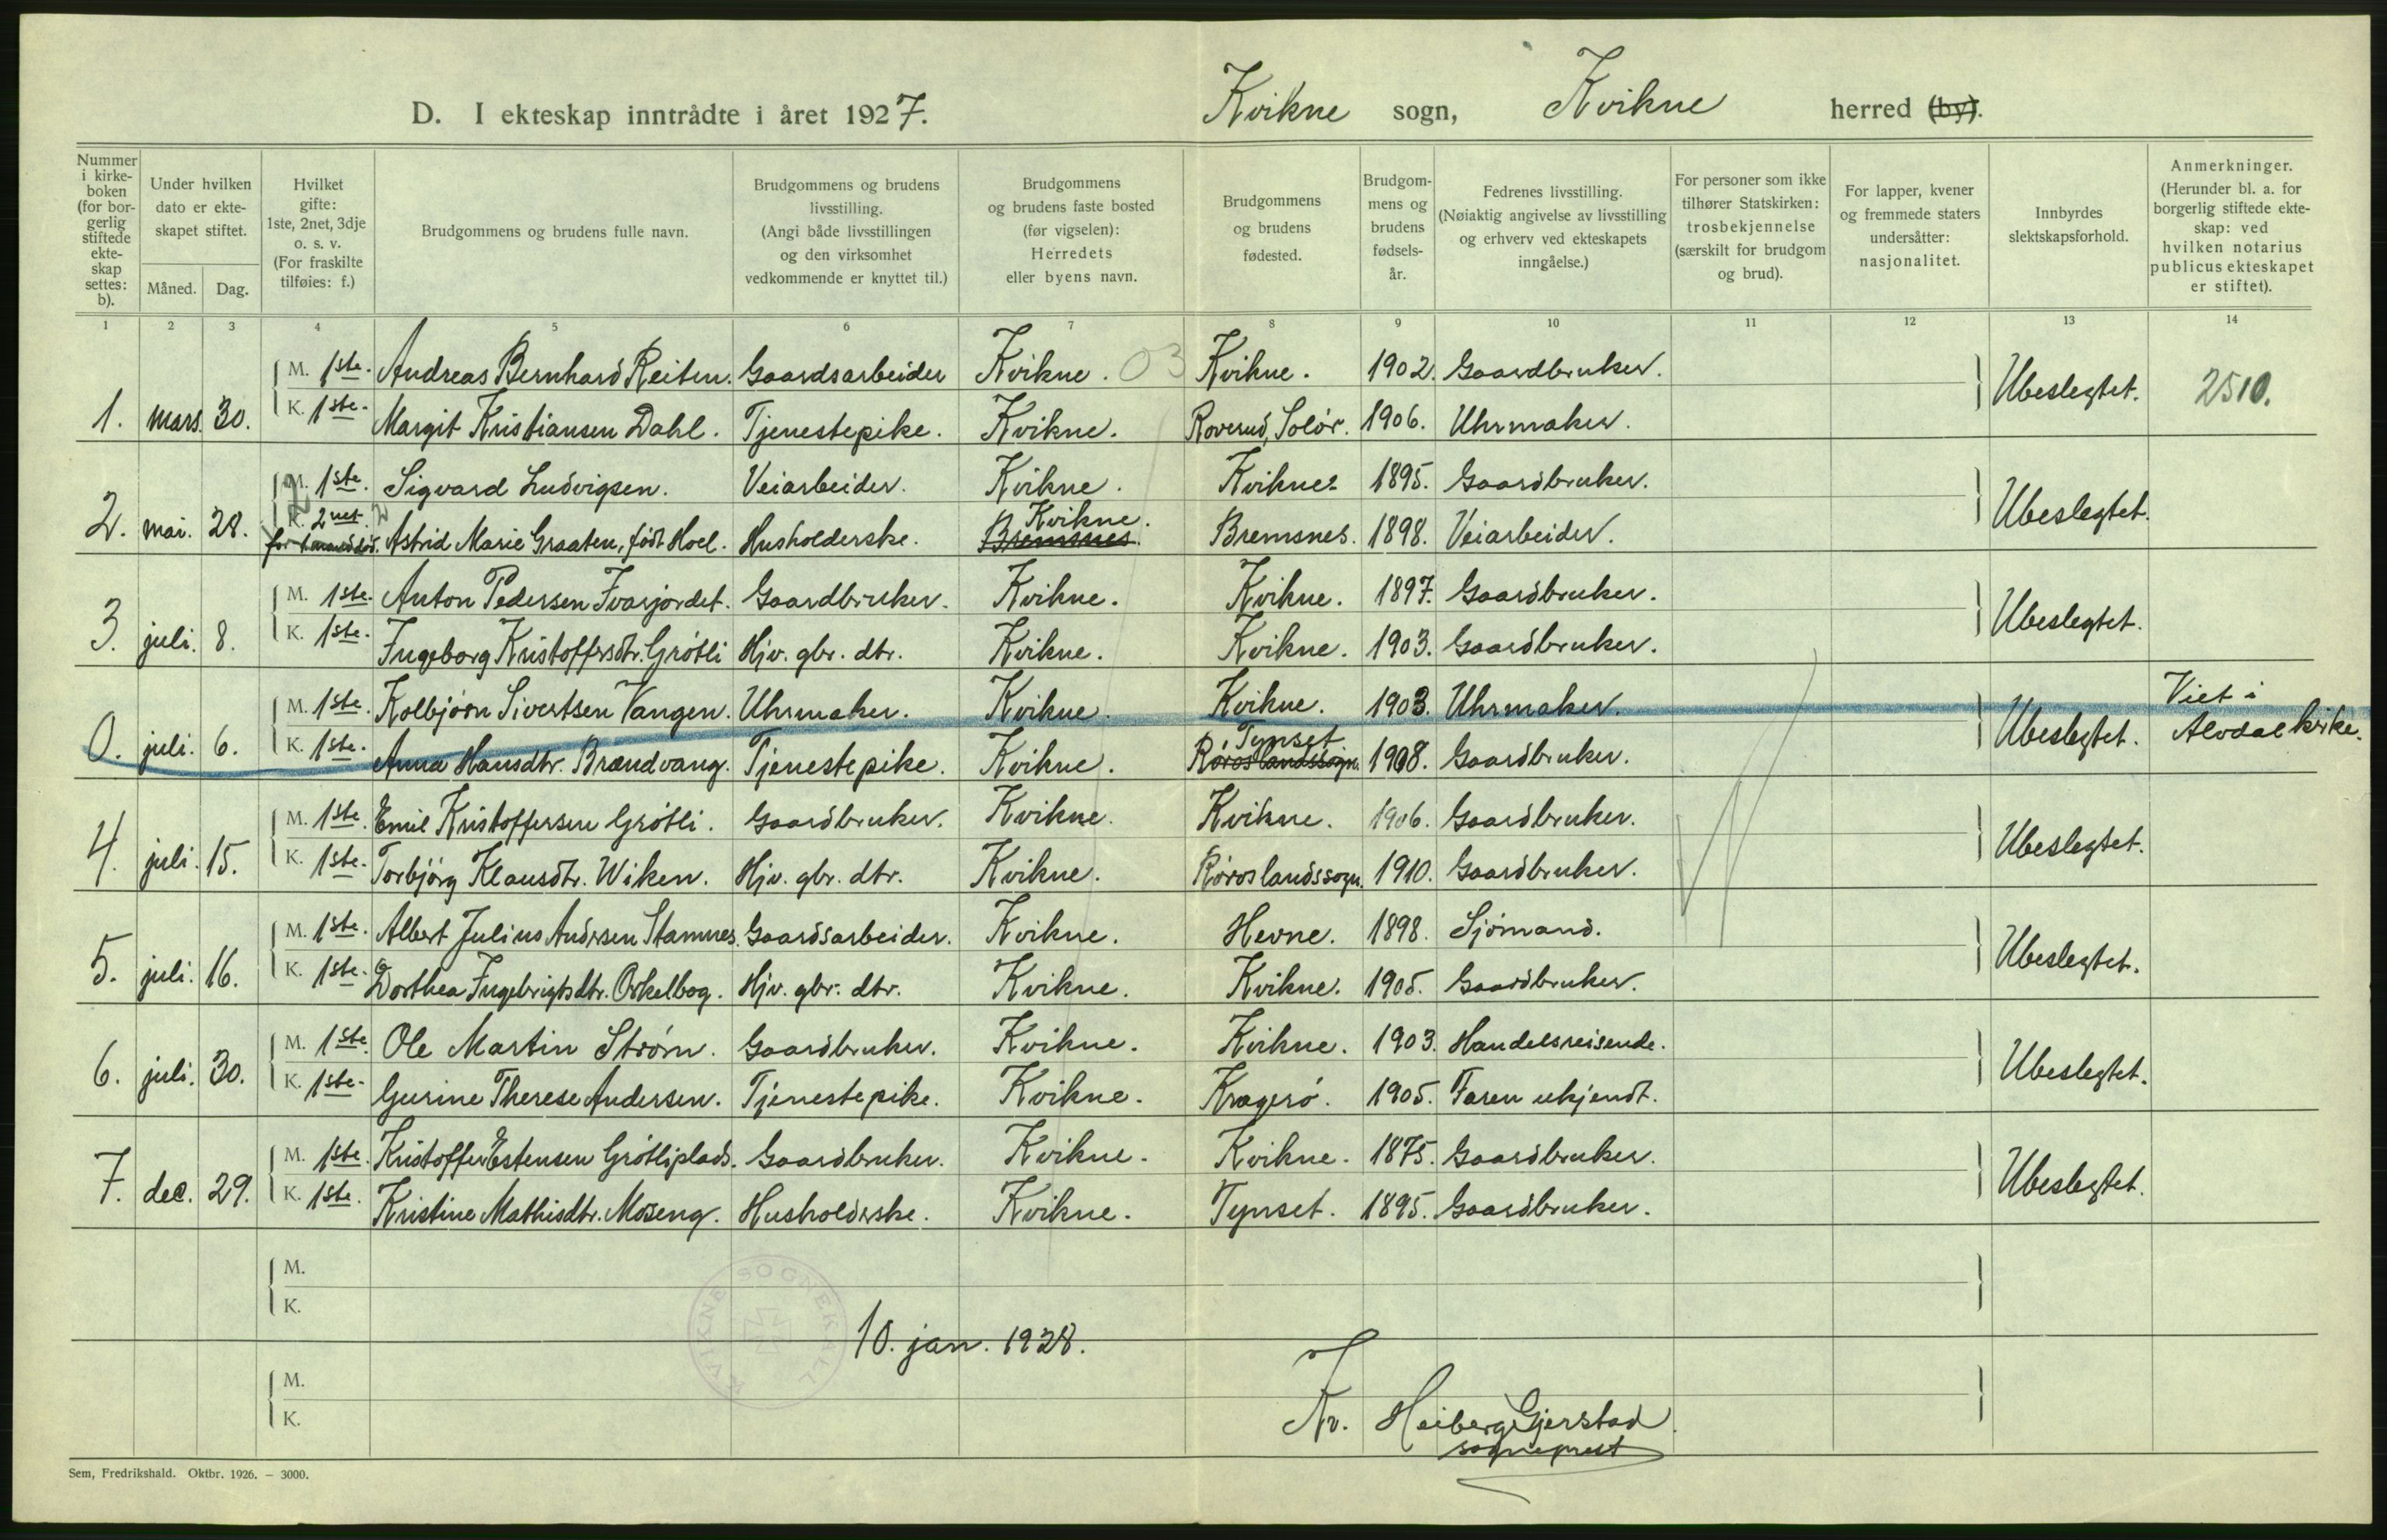 D. I ekteskap inntrådte i året 1927.
Kvikne sogn, Kvikne herred (by).
Nummer i kirke- boken (for bor- gerlig stiftede ekte- skap settes: b).
Under hvilken dato er ekte- skapet stiftet.
Måned. Dag.
Hvilket gifte: 1ste, 2net, 3dje o. s. v. (For fraskilte tilføies: f.)
Brudgommens og brudens fulle navn.
Brudgommens og brudens livsstilling. (Angi både livsstillingen og den virksomhet vedkommende er knyttet til.)
Brudgommens og brudens faste bosted (før vigselen): Herredets eller byens navn.
Brudgommens og brudens fødested.
Brudgom- mens og brudens fødsels- år.
Fedrenes livsstilling. (Nøiaktig angivelse av livsstilling og erhverv ved ekteskapets inngåelse.)
For personer som ikke tilhører Statskirken: trosbekjennelse (særskilt for brudgom og brud).
For lapper, kvener og fremmede staters undersåtter: nasjonalitet.
Innbyrdes slektskapsforhold.
Anmerkninger. (Herunder bl. a. for borgerlig stiftede ekte- skap: ved hvilken notarius publicus ekteskapet er stiftet).
1 2 3 4 5 6 7 8 9 10 11 12 13 14
M. 1ste. Andreas Bernhard Reiten. Gaardsarbeider Kvikne. 03 Kvikne. 1902. Gaardbruker.
1. mars. 30. K. 1ste. Margit Kristiansen Dahl. Tjenestepike. Kvikne. Roverud, Solør. 1906. Uhrmaker. Ubeslegtet. 2510.
M. 1ste. Sigvard Ludvigsen. Veiarbeider. Kvikne. Kvikne. 1895. Gaardbruker.
2. mai. 28. K. 2net. Astrid Marie Graaten, født Hoel. Husholderske. Kvikne. Bremsnes. Bremsnes. 1898. Veiarbeider. Ubeslegtet.
M. 1ste. Anton Pedersen Ivarjordet. Gaardbruker. Kvikne. Kvikne. 1897. Gaardbruker.
3. juli. 8. K. 1ste. Ingeborg Kristoffersdtr. Grøtli Hjv. gbr. dtr. Kvikne. Kvikne. 1903. Gaardbruker. Ubeslegtet.
M. 1ste. Kolbjørn Sivertsen Vangen. Uhrmaker. Kvikne. Kvikne. 1903. Uhrmaker.
0. juli. 6. K. 1ste. Anna Hansdtr. Brændvang. Tjenestepike. Kvikne. Tynset Røroslandssogn. 1908. Gaardbruker. Ubeslegtet. Viet i Alvdal kirke.
M. 1ste. Emil Kristoffersen Grøtli. Gaardbruker. Kvikne. Kvikne. 1906. Gaardbruker.
4. juli. 15. K. 1ste. Torbjørg Klausdtr. Wiken. Hjv. gbr. dtr. Kvikne. Røroslandssogn. 1910. Gaardbruker. Ubeslegtet.
M. 1ste. Albert Julius Andersen Stamnes. Gaardsarbeider. Kvikne. Hevne. 1898. Sjømand.
5. juli. 16. K. 1ste. Dorthea Ingebrigtsdtr. Orkelbog. Hjv. gbr. dtr. Kvikne. Kvikne. 1905. Gaardbruker. Ubeslegtet.
M. 1ste. Ole Martin Strøm. Gaardbruker. Kvikne. Kvikne. 1903. Handelsreisende.
6. juli. 30. K. 1ste. Gurine Therese Andersen. Tjenestepike. Kvikne. Kragerø. 1905. Faren ukjendt. Ubeslegtet.
M. 1ste. Kristoffer Estensen Grøtliplads. Gaardbruker. Kvikne. Kvikne. 1875. Gaardbruker.
7. dec. 29. K. 1ste. Kristine Mathisdtr. Moseng. Husholderske. Kvikne. Tynset. 1895. Gaardbruker. Ubeslegtet.
M.
K.
KVIKNE SOGNEKALL
10. jan. 1928.
M.
K.
Kr. Heiberg Gjerstad
sogneprest
Sem, Fredrikshald. Oktbr. 1926. — 3000.